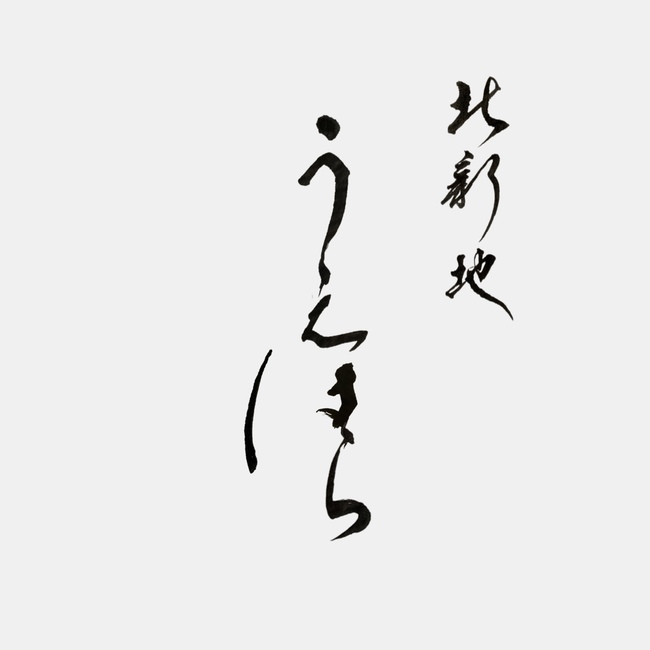 北新地
うえほら